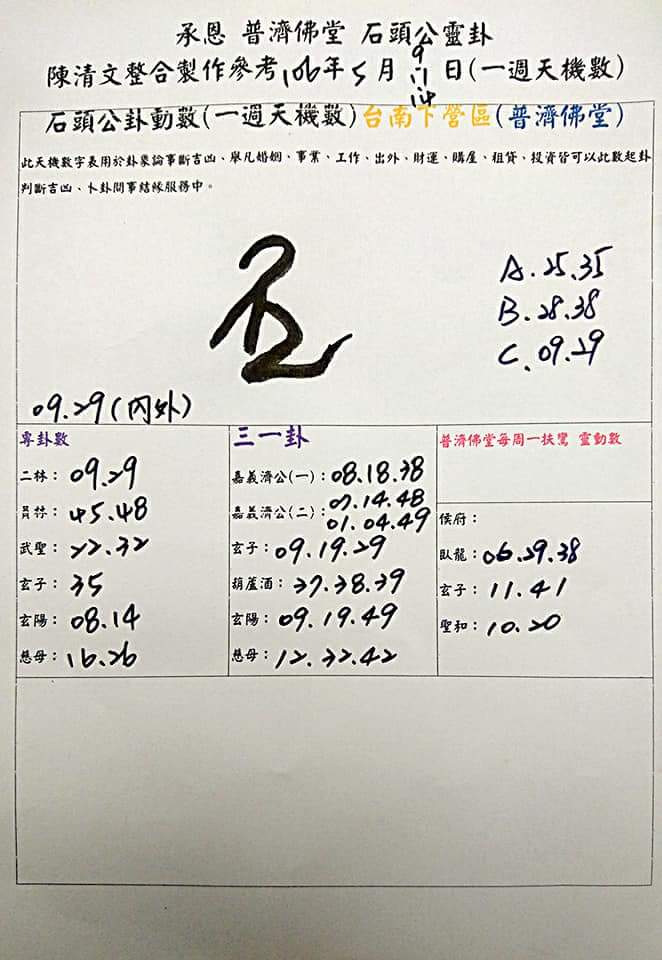 承恩 普濟佛堂 石頭公靈卦
陳清文整合製作參考106年5月9.11.14日(一週天機數)
石頭公卦動數(一週天機數)台南下營區(普濟佛堂)
此天機數字表用於卦象論事斷吉凶、舉凡婚姻、事業、工作、出外、財運、購屋、租貸、投資皆可以此數起卦
判斷吉凶、卜卦問事結緣服務中。
A.25.35
B.28.38
C.09.29
09.29(內外)
專卦數
二林：09.29
員林：45.48
武聖：22.32
玄子：35
玄陽：08.14
慈母：16.26
三一卦
嘉義濟公(一)：08.18.38
嘉義濟公(二)：07.14.48
01.04.49
玄子：09.19.29
葫蘆酒：37.38.39
玄陽：09.19.49
慈母：12.32.42
普濟佛堂每周一扶鸞 靈動數
侯府：
臥龍：06.29.38
玄子：11.41
聖和：10.20